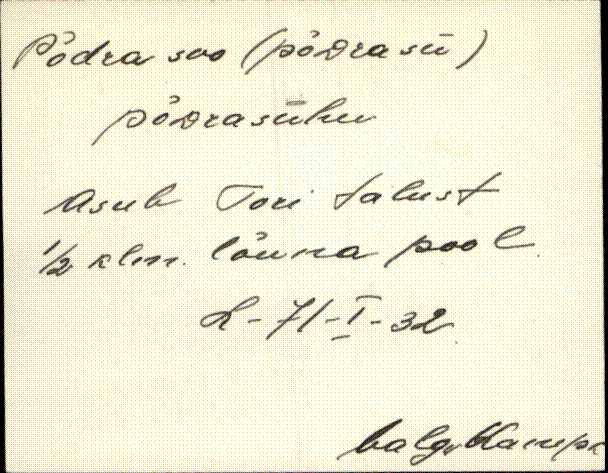 Põdra soo (põDra sū)
põDrasūhu
Asub Tori talust
1/2 klm. lõuna pool.
L-71-I-32.